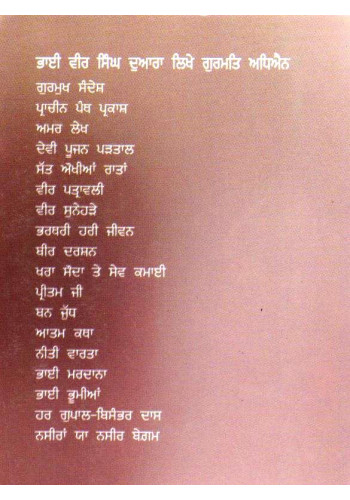 ਭਾਈ ਵੀਰ ਸਿੰਘ ਦੁਆਰਾ ਲਿਖੇ ਗੁਰਮਤਿ ਅਧਿਐਨ
ਗੁਰਮੁਖ ਸੰਦੇਸ਼
ਪ੍ਰਾਚੀਨ ਪੰਥ ਪ੍ਰਕਾਸ਼
ਅਮਰ ਲੇਖ
ਦੇਵੀ ਪੂਜਨ ਪੜਤਾਲ
ਸੱਤ ਔਖੀਆਂ ਰਾਤਾਂ
ਵੀਰ ਪਤ੍ਰਾਵਲੀ
ਵੀਰ ਸੁਨੇਹੜੇ
ਭਰਥਰੀ ਹਰੀ ਜੀਵਨ
ਬੀਰ ਦਰਸ਼ਨ
ਖਰਾ ਸੌਦਾ ਤੇ ਸੇਵ ਕਮਾਈ
ਪ੍ਰੀਤਮ ਜੀ
ਬਨ ਜੁੱਧ
ਆਤਮ ਕਥਾ
ਨੀਤੀ ਵਾਰਤਾ
ਭਾਈ ਮਰਦਾਨਾ
ਭਾਈ ਭੂਮੀਆਂ
ਹਰ ਗੁਪਾਲ-ਬਿਸੰਭਰ ਦਾਸ
ਨਸੀਰਾਂ ਯਾ ਨਸੀਰ ਬੇਗਮ